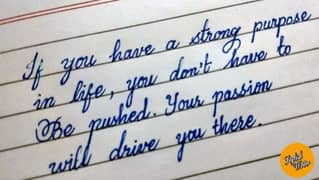 If you have a strong purpose
in life, you don't have to
Be pushed. Your passion
will drive you there.